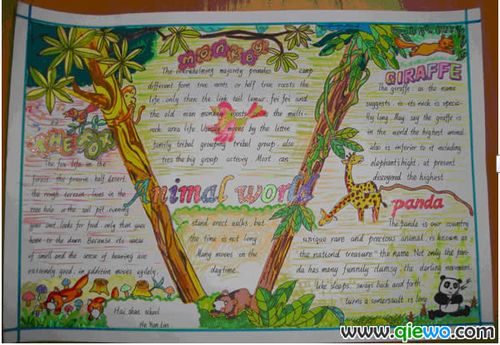 Monkey
The overwhelming majority primates camp
different form true roots or half true roots the
life only then the link tail lemur, fei fei and
the old man monkey exists on the multi-
rock area life Usually moves by the
family tribal grouping tribal group also
ties the big group activity Most can
stand erect walks but
the time is not long
Many moves on the
daytime.
GIRAFFE
The giraffe as the name
suggests is its neck is specia-
lly long May say the giraffe is
in the world the highest animal
also is inferior to it including
elephant's hight; at present
discoyond the highest
THE FOX
The fox life in the
forest the prairie half desert
the rough terrain lives in the
tree hole or the soil pit evening
goes out looks for food only then goes
home to the dawn Because its sense
of smell and the sense of hearing are
extremely good, in addition moves agilely.
Animal world
panda
The panda is our country
unique rare and precious animal is known as
"the national treasure" the name Not only the pan-
da has many funnily clumsy the darling movement
like sleeps: sways back and forth
turns a somersault is long
Hai shan school
He Yan Lin
www.qjewo.com